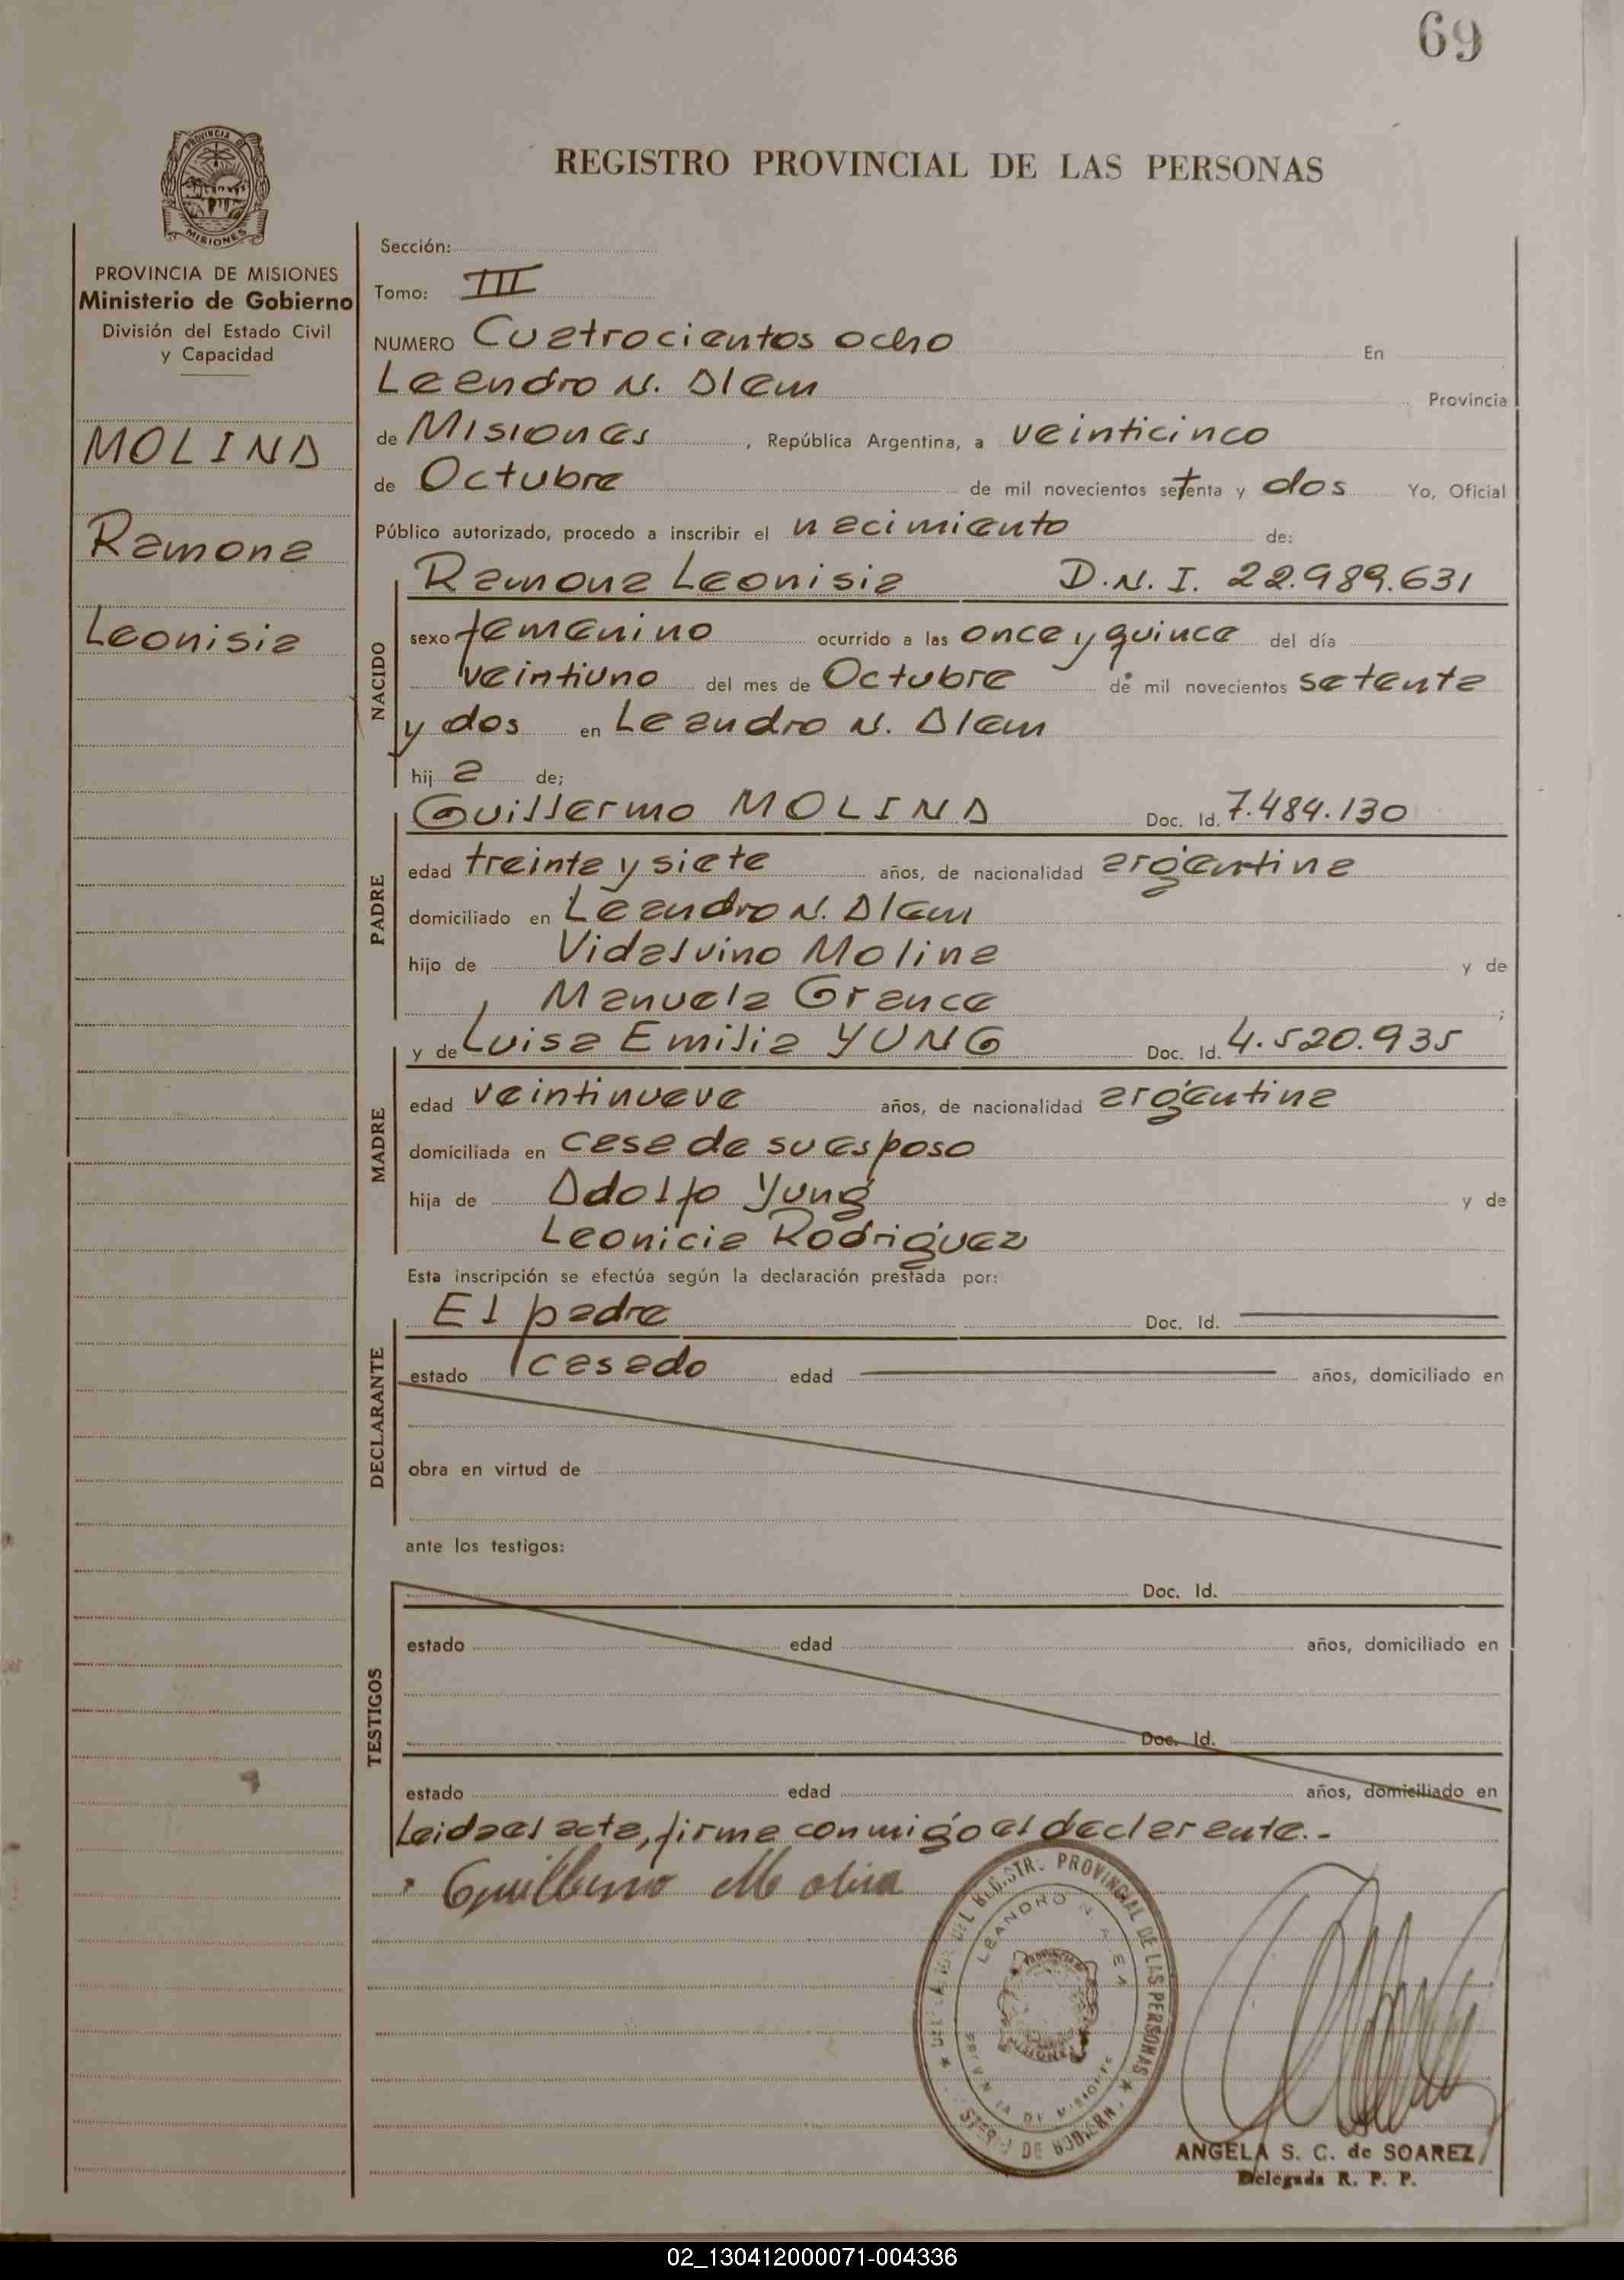 69
REGISTRO PROVINCIAL DE LAS PERSONAS
PROVINCIA DE MISIONES
Ministerio de Gobierno
División del Estado Civil
y Capacidad
MOLINA
Ramona
Leonisia
Sección:
Tomo: III
NUMERO Cuatrocientos ocho En
Leandro N. Alem Provincia
de Misiones, República Argentina, a veinticinco
de Octubre de mil novecientos setenta y dos Yo, Oficial
Público autorizado, procedo a inscribir el nacimiento de:
NACIDO
Ramona Leonisia D.N.I. 22.989.631
sexo femenino ocurrido a las once y quince del día
veintiuno del mes de Octubre de mil novecientos setenta
y dos en Leandro N. Alem
hij a de;
PADRE
Guillermo MOLINA Doc. Id. 7.484.130
edad treinta y siete años, de nacionalidad argentina
domiciliado en Leandro N. Alem
hijo de Vidalvino Molina y de
Manuela Grance ;
MADRE
y de Luisa Emilia YUNG Doc. Id. 4.520.935
edad veintinueve años, de nacionalidad argentina
domiciliada en casa de su esposo
hija de Adolfo Yung y de
Leonicia Rodriguez
Esta inscripción se efectúa según la declaración prestada por:
DECLARANTE
El padre Doc. Id.
estado casado edad años, domiciliado en
obra en virtud de
ante los testigos:
TESTIGOS
Doc. Id.
estado edad años, domiciliado en
Doc. Id.
estado edad años, domiciliado en
Leida el acta, firma conmigo el declarante.-
Guillermo Molina
REGISTR. PROVINCIAL DE LAS PERSONAS
LEANDRO N.
MISIONES
ANGELA S. C. de SOAREZ
Delegada R. P. P.
02_130412000071-004336